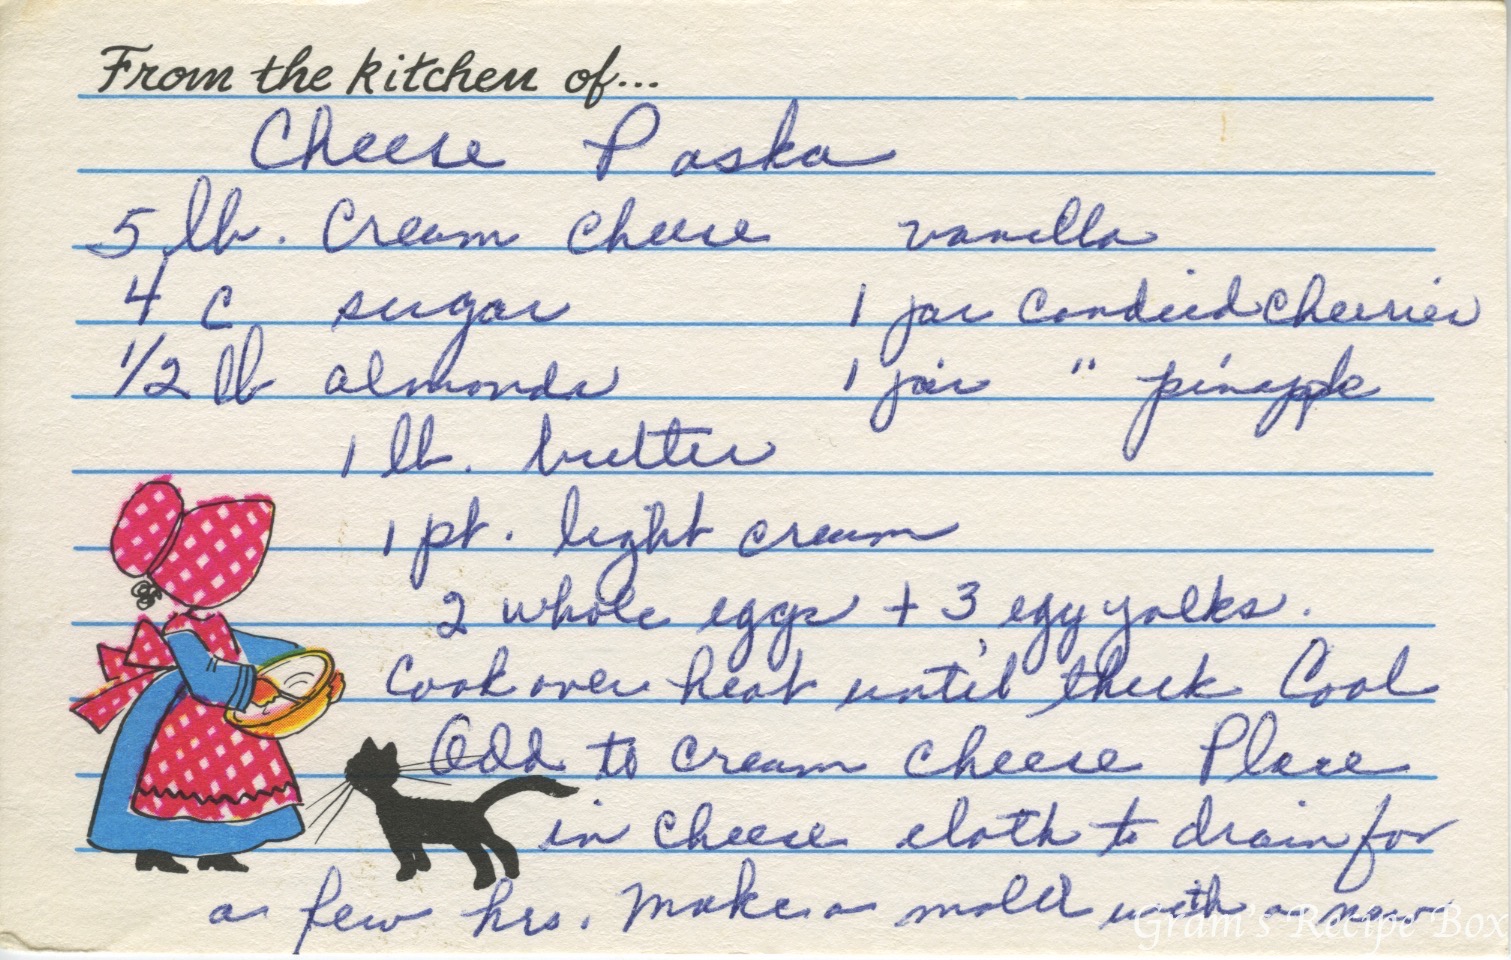 From the kitchen of...
Cheese Paska
5 lb. Cream cheese vanilla
4 c sugar 1 jar Candied Cherries
1/2 lb almonds 1 jar " pineapple
1 lb. butter
1 pt. light cream
2 whole eggs + 3 egg yolks.
Cook over heat until thick Cool
Add to cream cheese Place
in cheese cloth to drain for
a few hrs. Make a mold with a new
Gram's Recipe Box